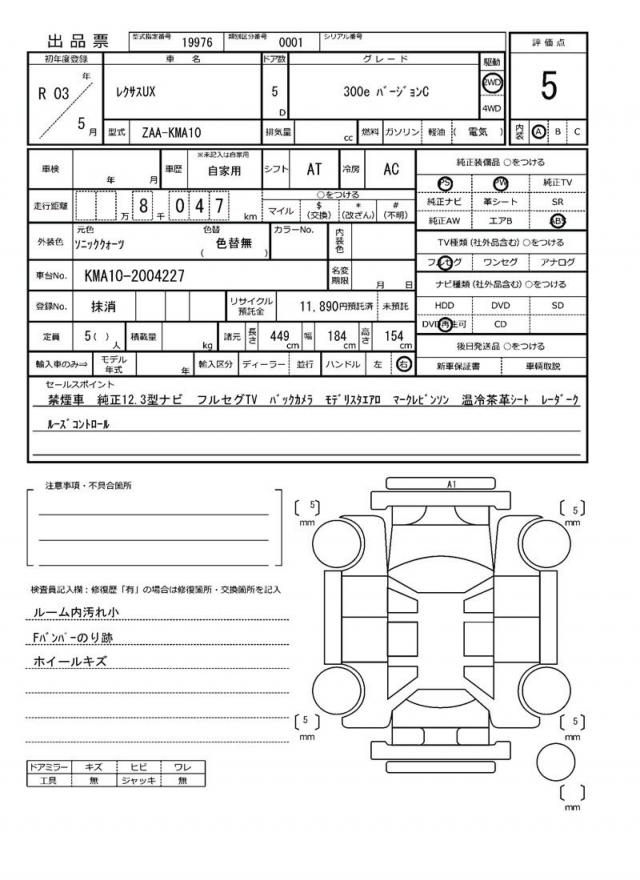 出品票 型式指定番号 19976 類別区分番号 0001 シリアル番号
初年度登録 車名 ドア数 グレード 駆動 評価点
R 03 年 5 月 レクサスUX 5 D 300e バージョンC 2WD 4WD 5
型式 ZAA-KMA10 排気量 cc 燃料 ガソリン 軽油 ( 電気 ) 内装 A B C
車検 年 月 車歴 ※未記入は自家用 自家用 シフト AT 冷房 AC
走行距離 万 8 千 0 4 7 km ○をつける マイル $ (交換) * (改ざん) # (不明)
外装色 元色 ソニッククォーツ 色替 ( 色替無 ) カラーNo. 内装色
車台No. KMA10-2004227 名変期限 月 日
登録No. 抹消 リサイクル預託金 11,890円預託済 未預託
定員 5( ) 人 積載量 kg 諸元 長さ 449 cm 幅 184 cm 高さ 154 cm
輸入車のみ⇒ モデル年式 年 輸入区分 ディーラー 並行 ハンドル 左 右
純正装備品 ○をつける
PS PW 純正TV
純正ナビ 革シート SR
純正AW エアB ABS
TV種類 (社外品含む) ○をつける
フルセグ ワンセグ アナログ
ナビ種類 (社外品含む) ○をつける
HDD DVD SD
DVD再生可 CD
後日発送品 ○をつける
新車保証書 車輌取説
セールスポイント
禁煙車 純正12.3型ナビ フルセグTV バックカメラ モデリスタエアロ マークレビンソン 温冷茶革シート レーダーク
ルーズコントロール
注意事項・不具合箇所
検査員記入欄:修復歴「有」の場合は修復箇所・交換箇所を記入
ルーム内汚れ小
Fバンパーのり跡
ホイールキズ
ドアミラー キズ ヒビ ワレ
工具 無 ジャッキ 無
A1
[ 5 ] mm
[ 5 ] mm
[ 5 ] mm
[ 5 ] mm
[ ] mm